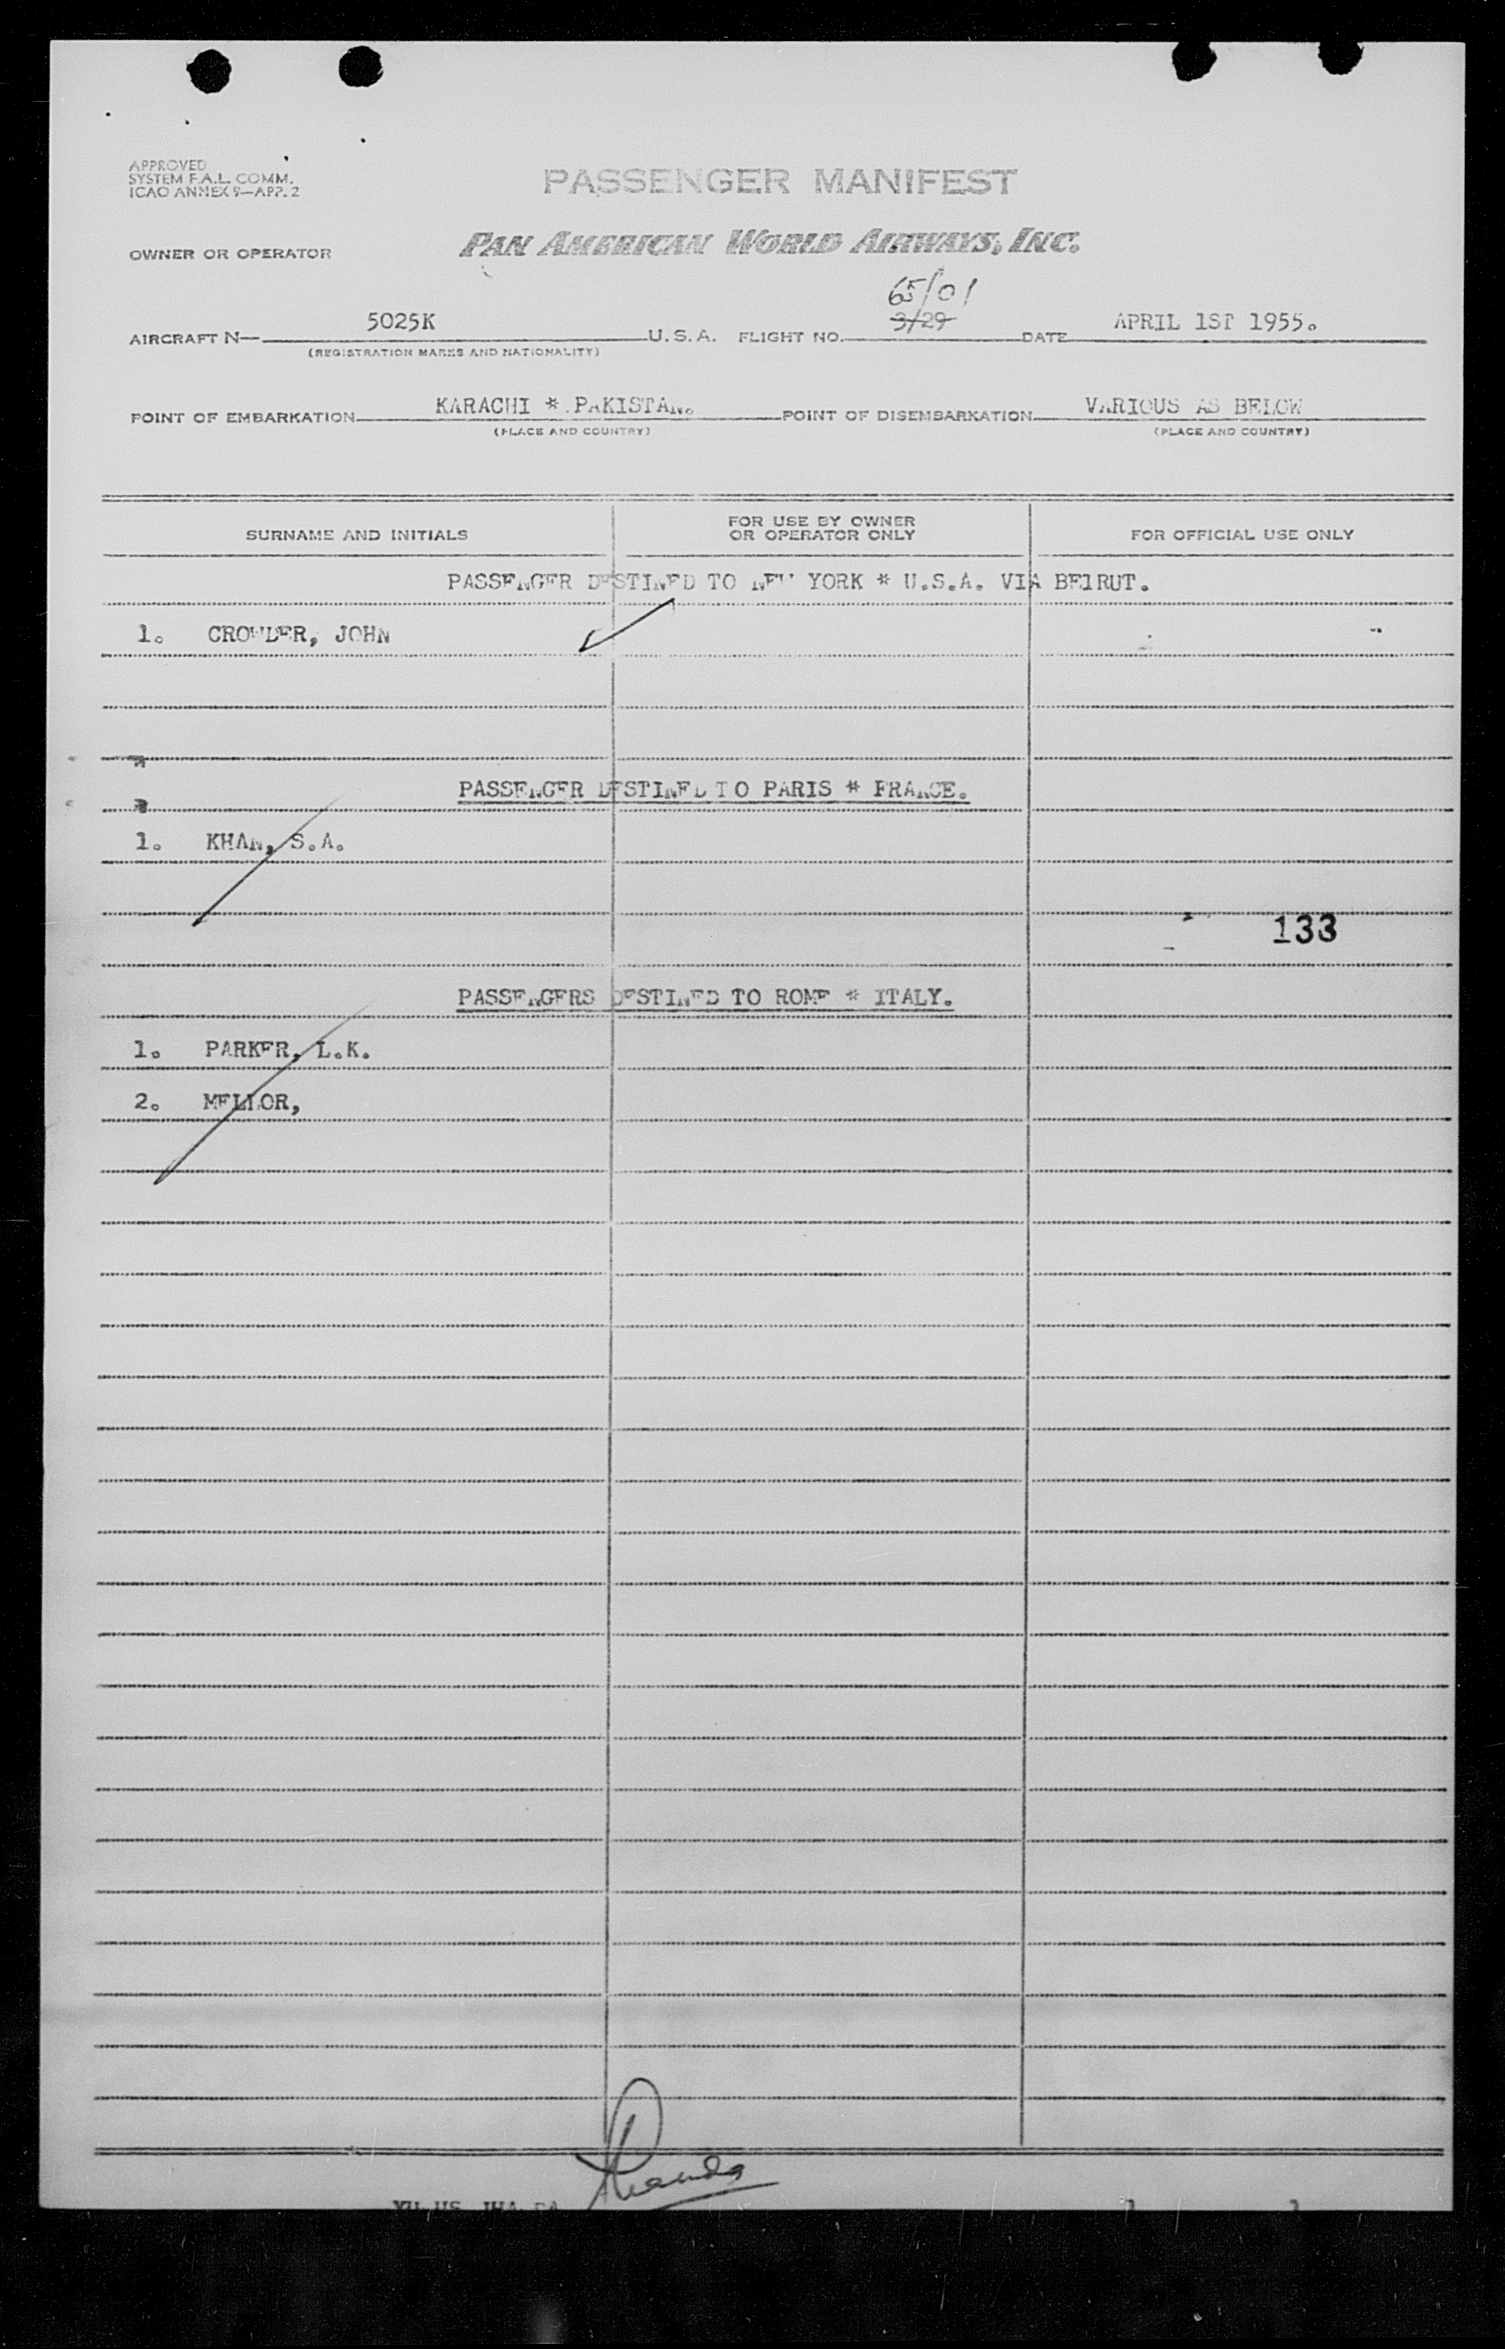 APPROVED
SYSTEM F.A.L. COMM.
ICAO ANNEX 9—APP. 2
PASSENGER MANIFEST
OWNER OR OPERATOR
PAN AMERICAN WORLD AIRWAYS, INC.
65/01
AIRCRAFT N— 5025K U.S.A. FLIGHT NO. 3/29 DATE APRIL 1ST 1955.
(REGISTRATION MARKS AND NATIONALITY)
POINT OF EMBARKATION KARACHI * PAKISTAN. POINT OF DISEMBARKATION VARIOUS AS BELOW
(PLACE AND COUNTRY) (PLACE AND COUNTRY)
SURNAME AND INITIALS
FOR USE BY OWNER
OR OPERATOR ONLY
FOR OFFICIAL USE ONLY
PASSENGER DESTINED TO NEW YORK * U.S.A. VIA BEIRUT.
1. CROWDER, JOHN
PASSENGER DESTINED TO PARIS * FRANCE.
1. KHAN, S.A.
133
PASSENGERS DESTINED TO ROME * ITALY.
1. PARKER, L.K.
2. MELLOR,